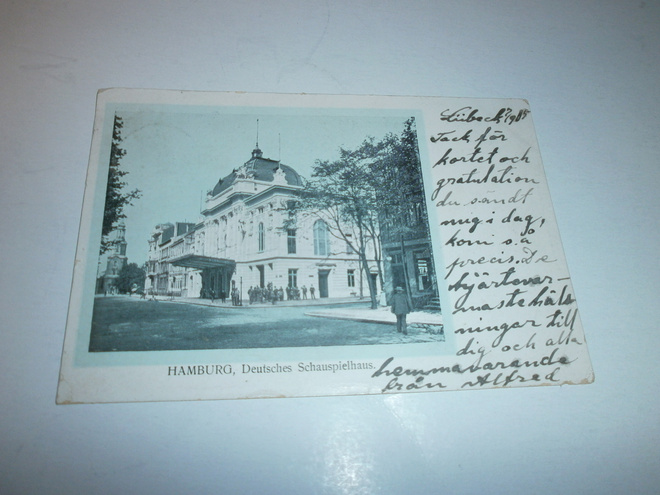 HAMBURG, Deutsches Schauspielhaus.
Lübeck 1905
Tack för
kortet och
gratulation
du sändt
mig i dag,
kom så
precis. De
hjärtevar-
maste häls
ningar till
dig och alla
hemmavarande
från Alfred